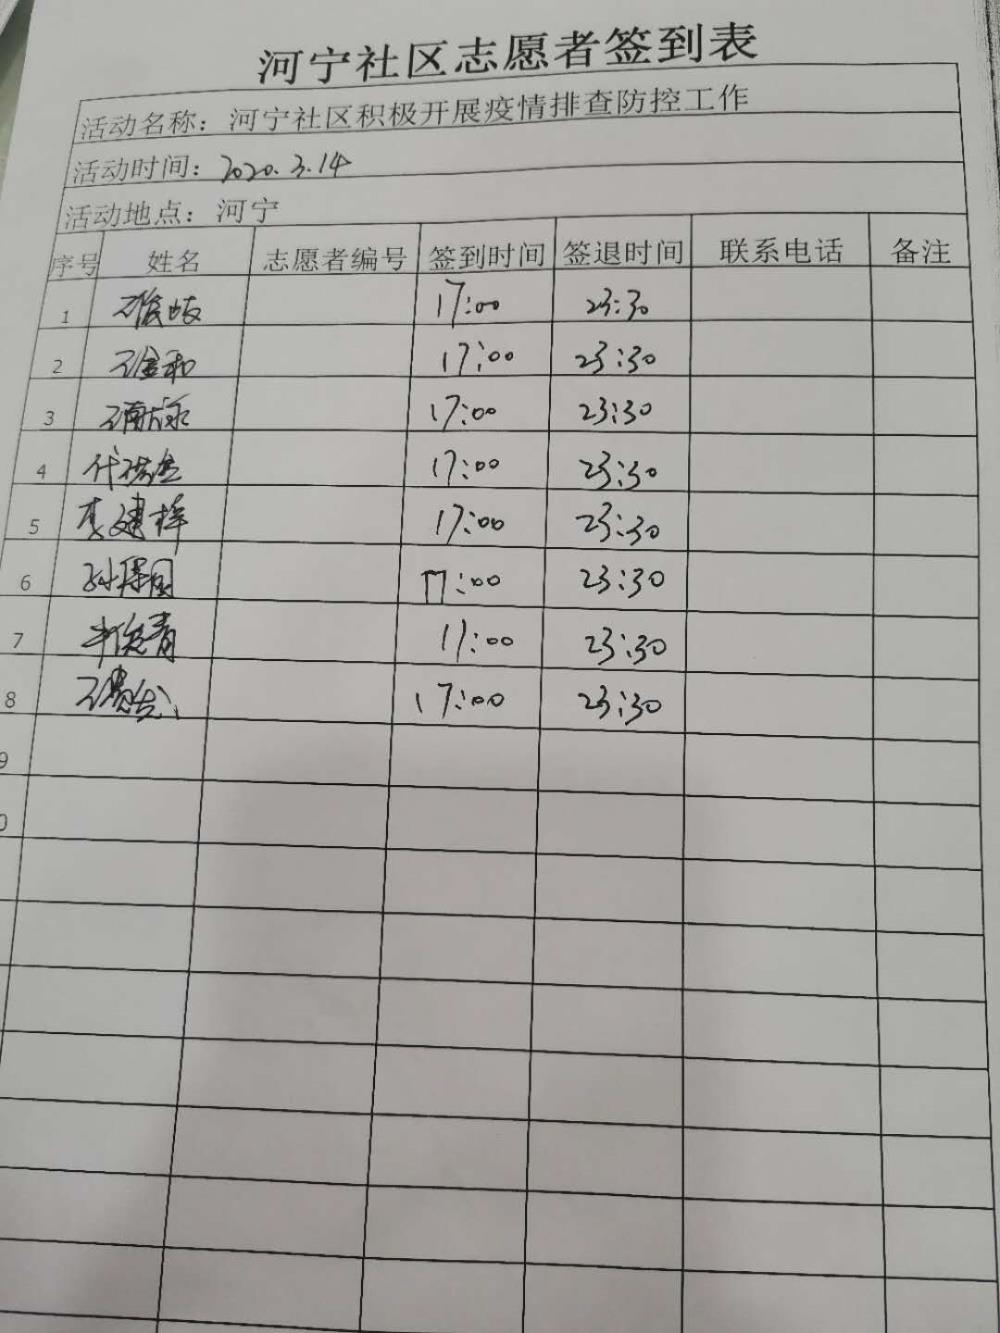 河宁社区志愿者签到表
活动名称：河宁社区积极开展疫情排查防控工作
活动时间：2020.3.14
活动地点：河宁
序号 姓名 志愿者编号 签到时间 签退时间 联系电话 备注
1 17:00 23:30
2 17:00 23:30
3 17:00 23:30
4 17:00 23:30
5 李建梅 17:00 23:30
6 17:00 23:30
7 17:00 23:30
8 17:00 23:30
9
0